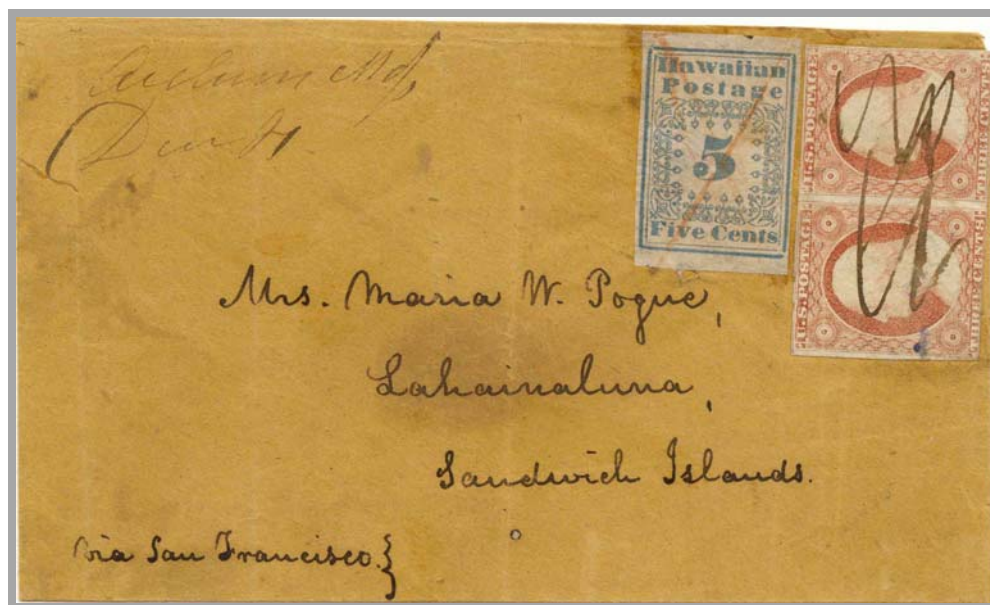 Md,
Hawaiian
Postage
5
Five Cents
U.S. POSTAGE
THREE CENTS
U.S. POSTAGE
THREE CENTS
Mrs. Maria W. Pogue,
Lahainaluna,
Sandwich Islands.
via San Francisco.}